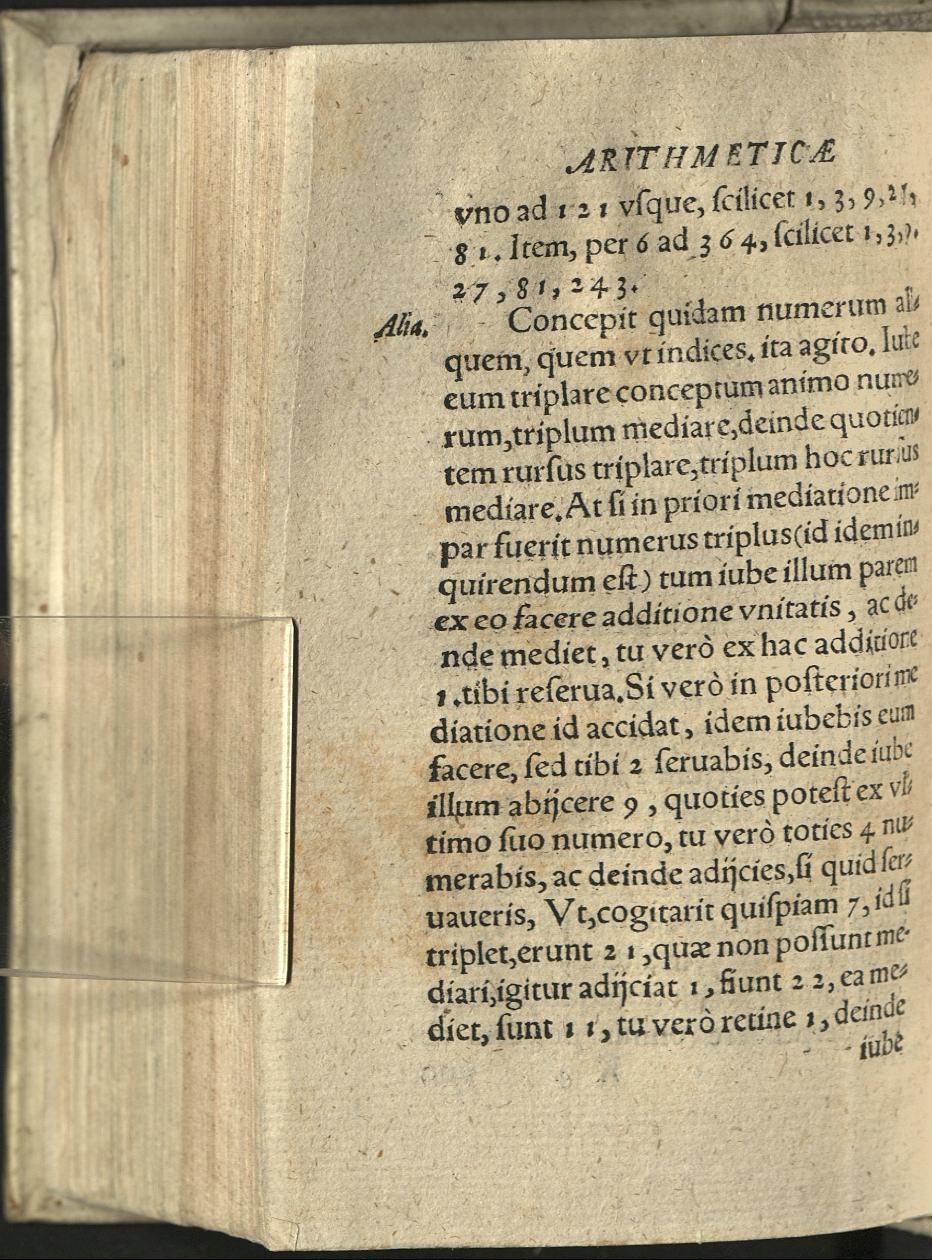 ARITHMETICÆ
vno ad 1 2 1 vſque, ſcilicet 1, 3, 9, 27,
8 1. Item, per 6 ad 3 6 4, ſcilicet 1, 3, 9,
2 7, 8 1, 2 4 3.
Alia.
Concepit quidam numerum ali⸗
quem, quem vt indices, ita agito. Iube
eum triplare conceptum animo nume⸗
rum, triplum mediare, deinde quotien⸗
tem rurſus triplare, triplum hoc rurſus
mediare. At ſi in priori mediatione im⸗
par fuerit numerus triplus (id idem in⸗
quirendum eſt) tum iube illum parem
ex eo facere additione vnitatis, ac de⸗
nde mediet, tu verò ex hac additione
1. tibi reſerua. Si verò in poſteriori me
diatione id accidat, idem iubebis eum
facere, ſed tibi 2 ſeruabis, deinde iube
illum abijcere 9, quoties poteſt ex vl⸗
timo ſuo numero, tu verò toties 4 nu⸗
merabis, ac deinde adijcies, ſi quid ſer⸗
uaueris, Vt, cogitarit quiſpiam 7, id ſi
triplet, erunt 2 1, quæ non poſſunt me⸗
diari, igitur adijciat 1, fiunt 2 2, ea me⸗
diet, ſunt 1 1, tu verò retine 1, deinde
iube